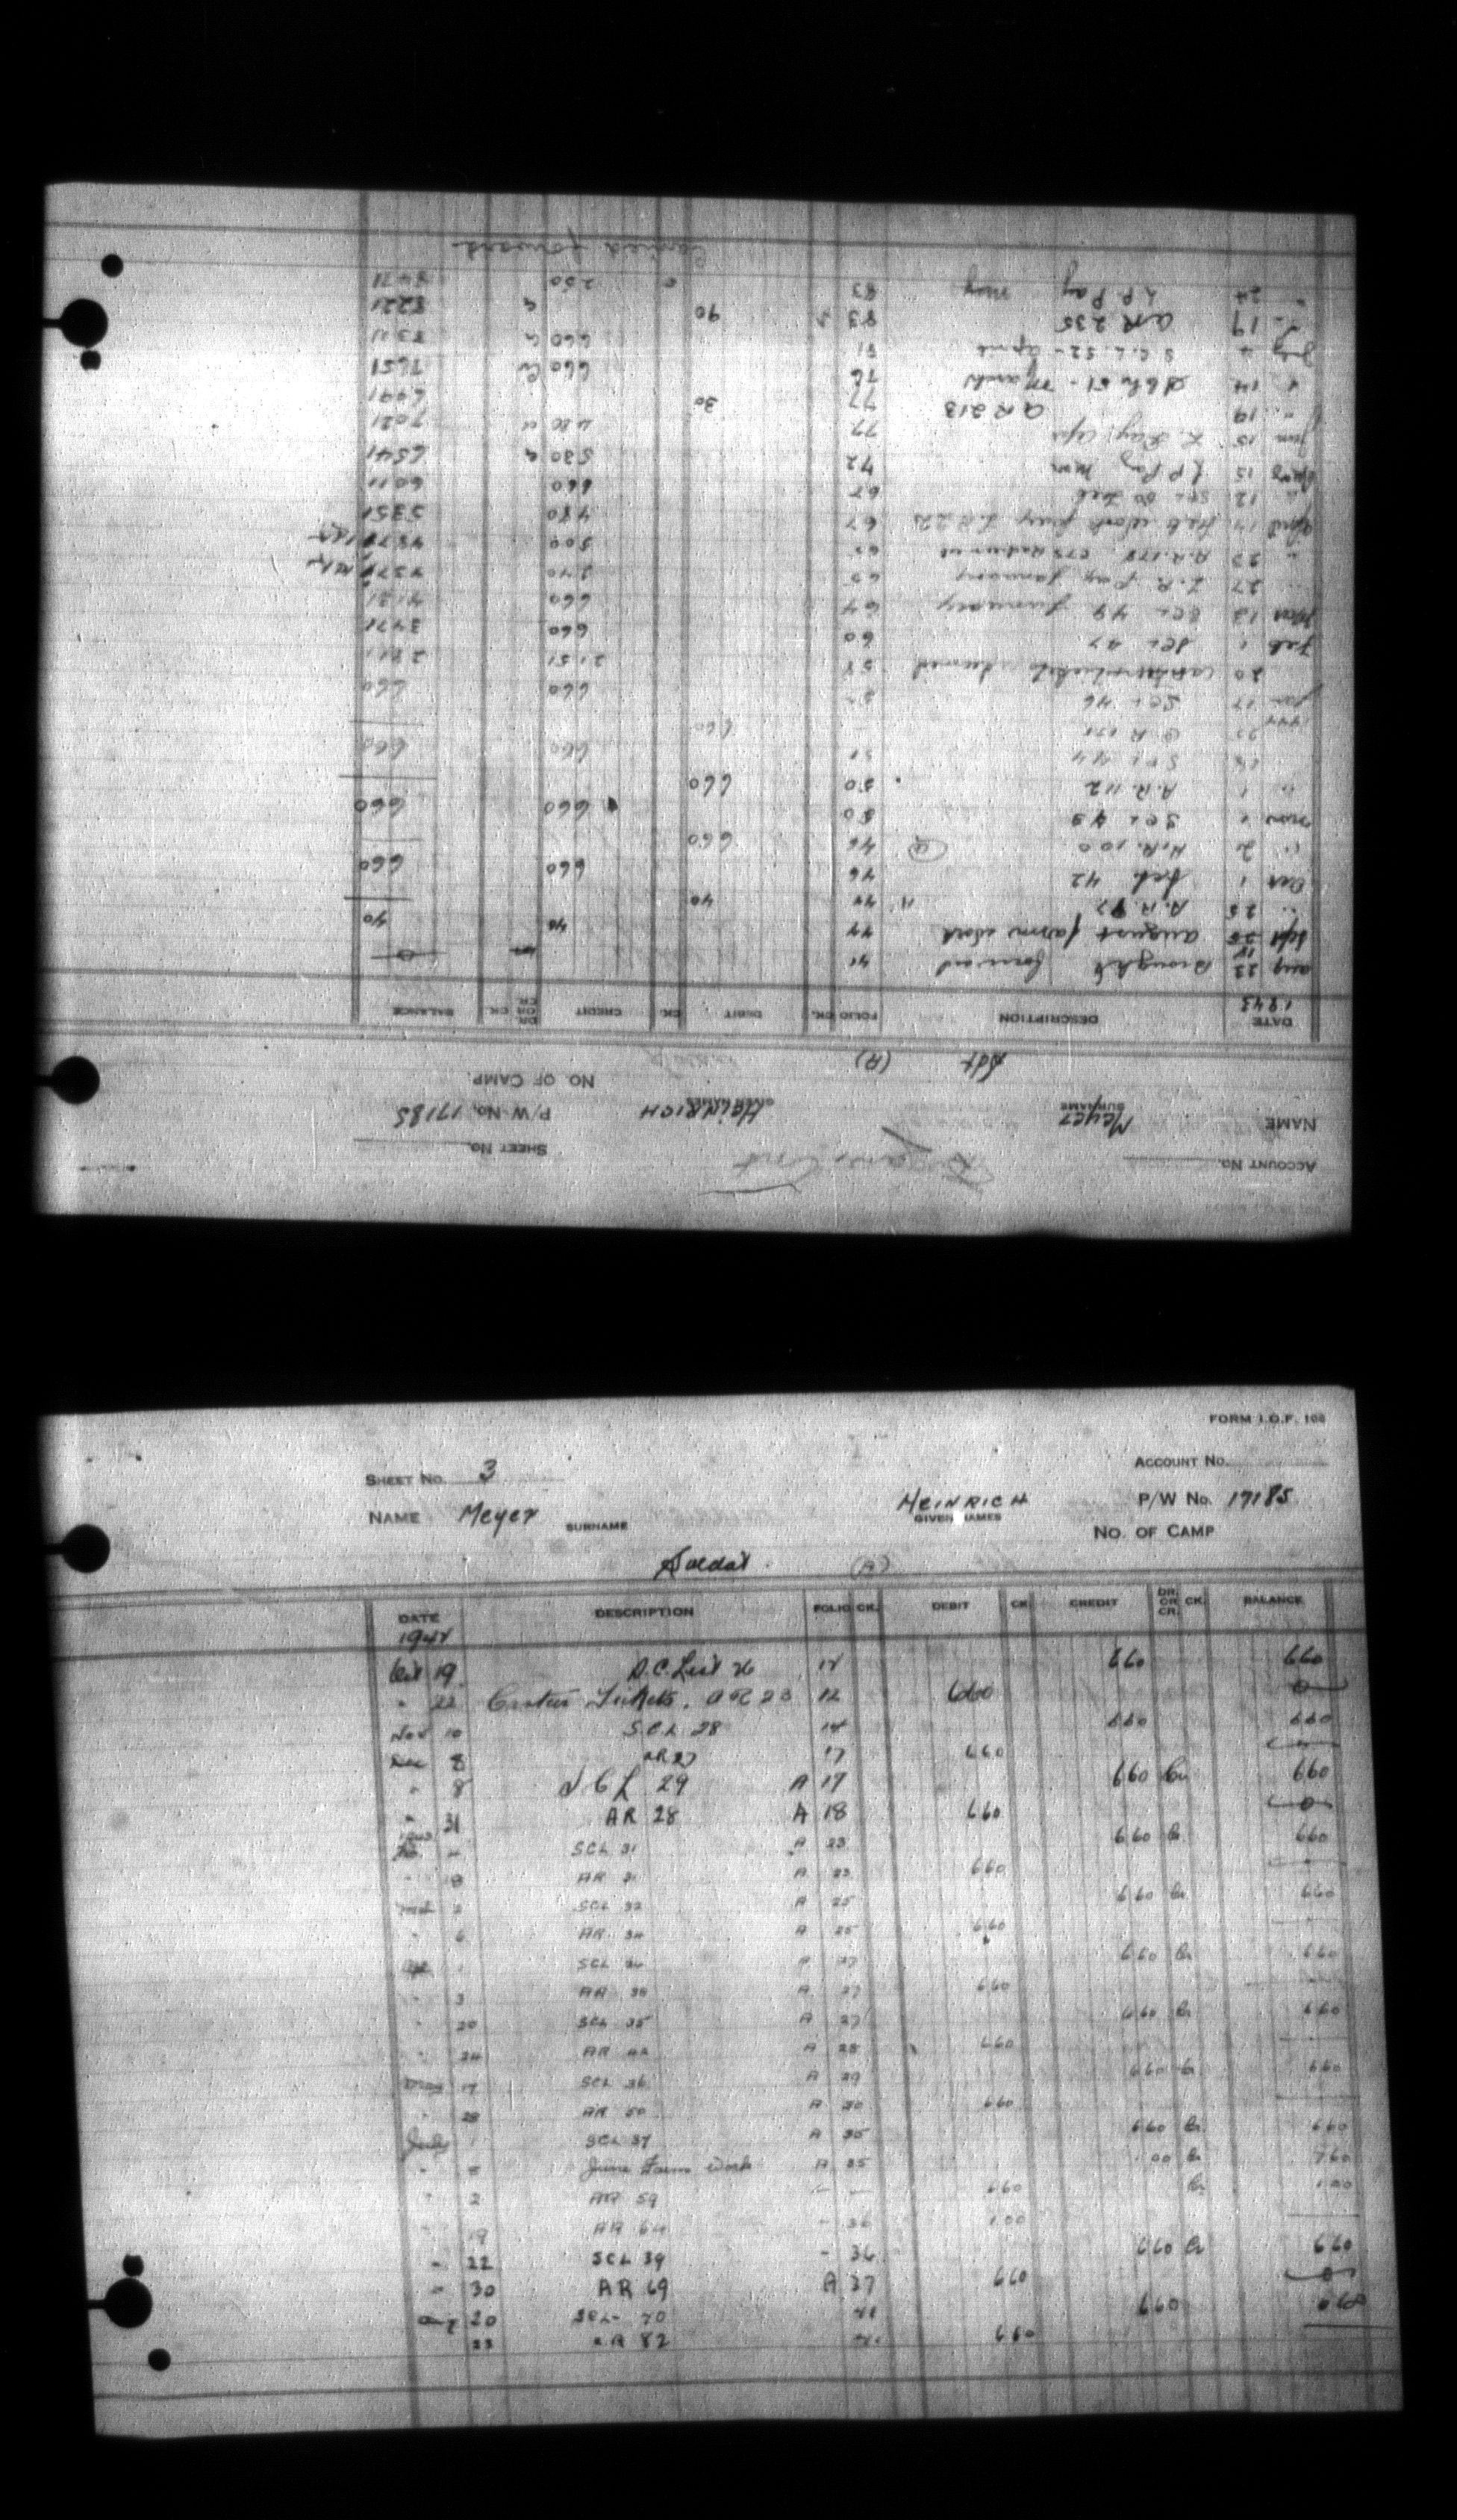 ACCOUNT No. SHEET No.
NAME Meyer SURNAME HEINRICH GIVEN NAMES P/W No. 17185
Sdt (A) NO. OF CAMP.
DATE DESCRIPTION FOLIO CK. DEBIT CK. CREDIT DR. OR CR. CK. BALANCE
1943
Aug 23 Brought forward 41 0
Sept 25 August farm work 44 40 40
" 25 A.R. 97 44 40
Oct 1 42 46 660 660
" 2 A.R. 100 46 660
Nov 1 SCL 43 50 660 660
" 1 A.R. 112 50 660
SCL 44 51 660 660
A.R. 660
1944
Jan 17 SCL 46 660 660
20 Canteen tickets redeemed 58 2151 2811
Feb 1 SCL 47 60 660 3471
Mar 13 SCL 49 January 64 660 4131
" 27 L.R. Pay January 65 240 4371
" 23 A.R. 178 redeemed 65 500 4871
April 14 Feb Work pay 67 480 5351
" 12 SCL 50 Feb 67 660 6011
15 L P Pay Mar 72 530 6541
Jun 15 L. Pay Apr 77 480 7021
" 19 AR 213 77 30 6991
" 14 SCL 51 - March 76 660 Cr 7651
July 4 S.C.L. 52 - April 81 660 8311
" 19 AR 235 83 90 8221
" 24 L.P. Pay May 83 250 8471
Carried forward
FORM I.O.F. 108
SHEET No. 3 ACCOUNT No.
NAME Meyer SURNAME HEINRICH GIVEN NAMES P/W No. 17185
NO. OF CAMP
Soldat. (A)
DATE DESCRIPTION FOLIO CK. DEBIT CK CREDIT DR. OR CR. CK. BALANCE
1942
Oct 19 S.C. List 26 12 660 660
" 22 Canteen Tickets. AR 23 12 660 0
Nov 10 SCL 28 14 660 660
Dec 8 AR 27 17 660
" 8 SCL 29 A 17 660 Cr 660
" 31 AR 28 A 18 660 0
SCL 31 A 23 660 Cr 660
" 8 AR 31 A 23 660
Mar 2 SCL 32 A 25 660 Cr 660
" 6 AR 34 A 25 660
Apr 1 SCL 34 A 27 660 Cr 660
" 3 AR 38 A 27 660
" 20 SCL 35 A 27 660 Cr 660
" 24 AR 44 A 28 660
May 17 SCL 36 A 29 660 Cr 660
" 28 AR 50 A 30 660
July 1 SCL 37 A 35 660 Cr 660
" June Farm Work A 35 100 Cr 760
" 2 AR 59 660 Cr 100
" 19 AR 64 - 36 100
" 22 SCL 39 - 36 660 Cr 660
" 30 AR 69 A 37 660 0
Aug 20 SCL 40 41 660 660
23 AR 82 41 660